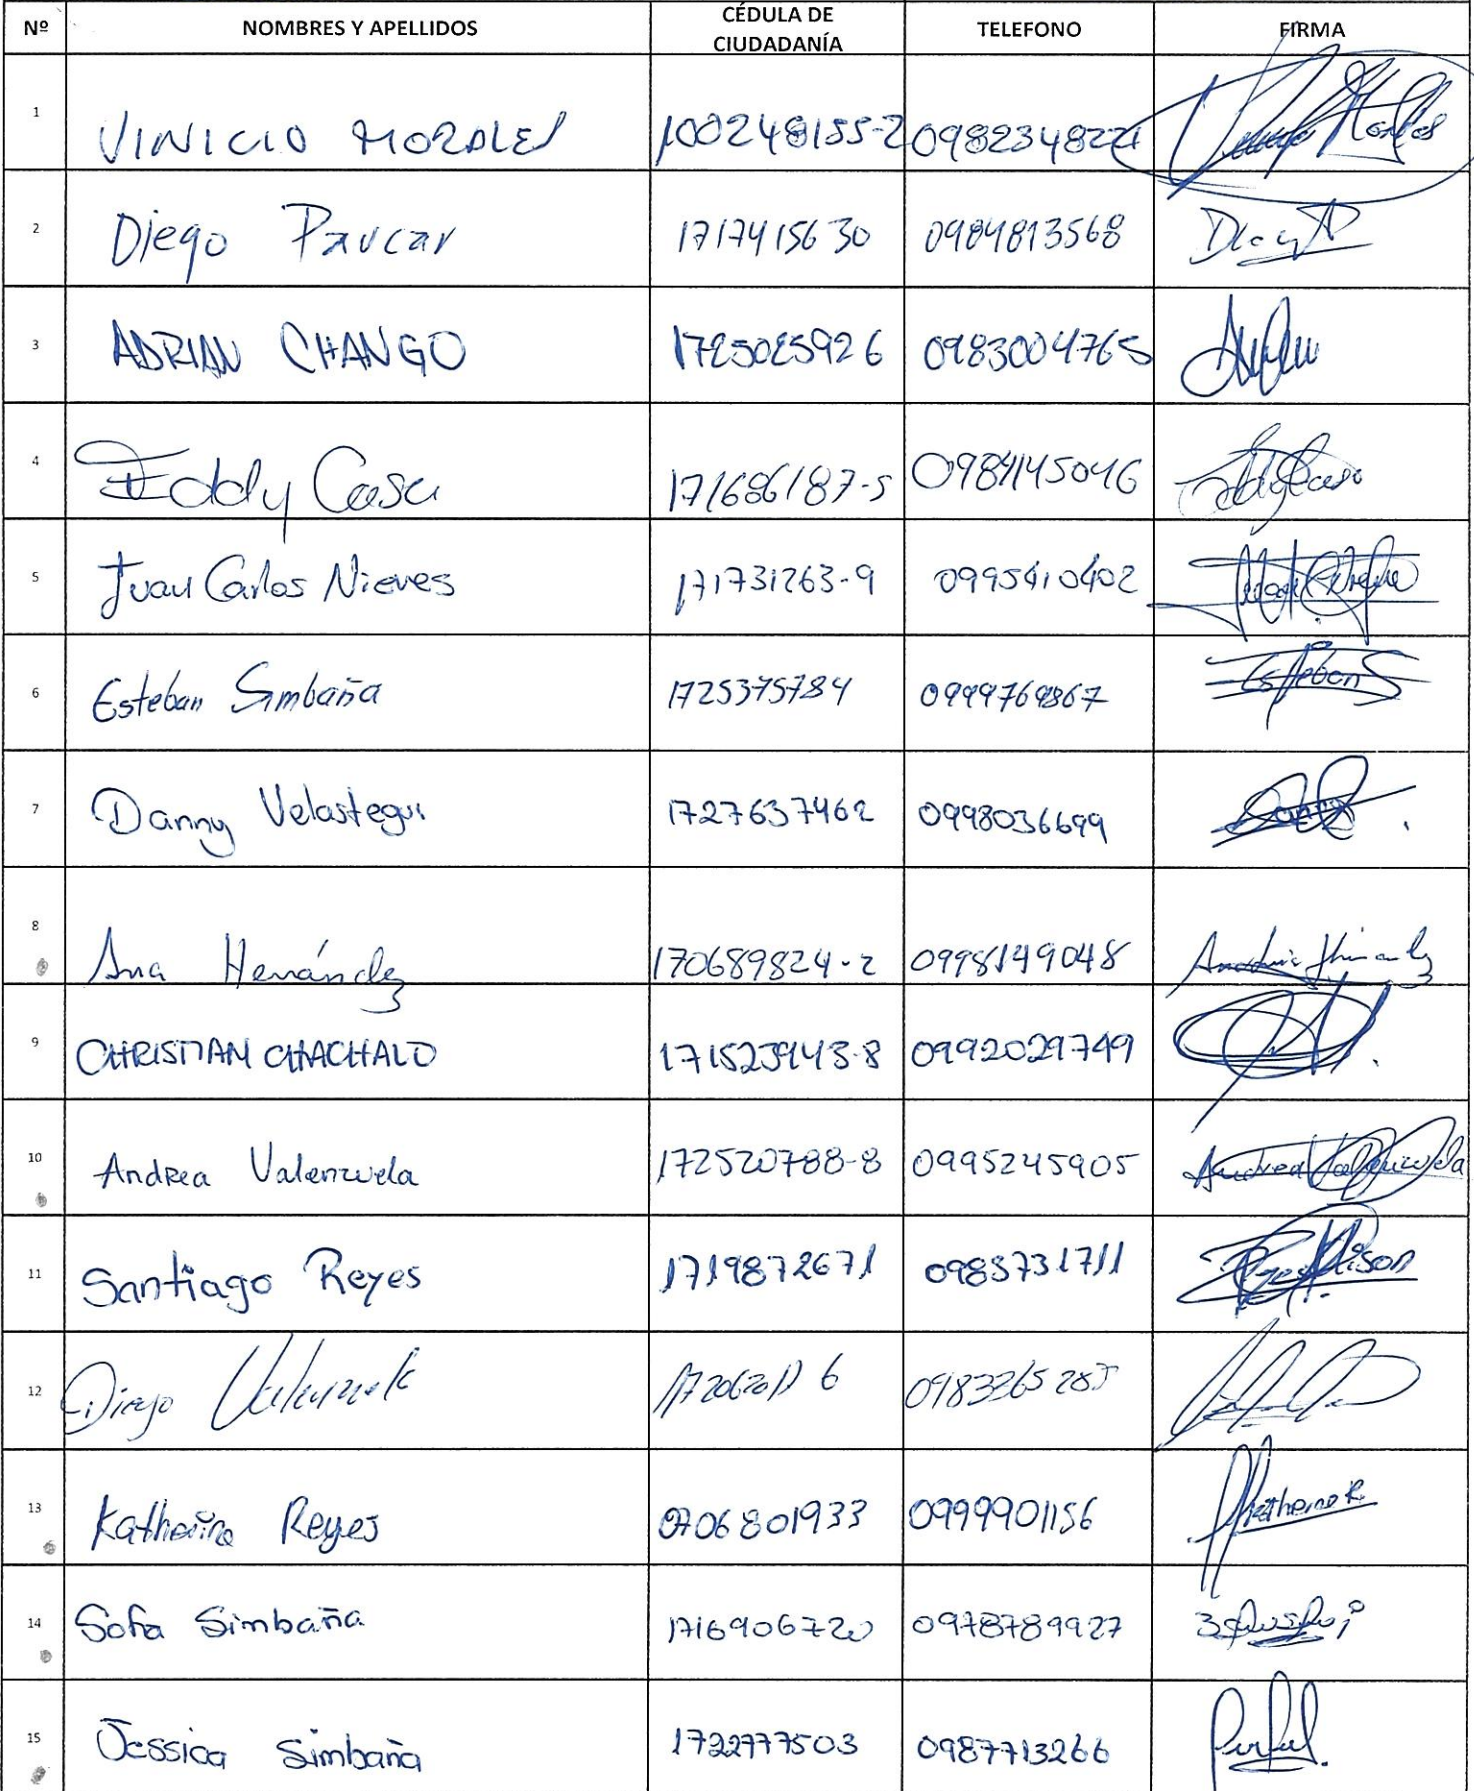 Nº NOMBRES Y APELLIDOS CÉDULA DE CIUDADANÍA TELEFONO FIRMA
1 VINICIO MORALES 100248155-2 0982348221
2 Diego Paucar 1717415630 0984813568
3 ADRIAN CHANGO 1725025926 0983004765
4 Eddy Casa 171686187-5 0984145046
5 Juan Carlos Nieves 171731263-9 0995410402
6 Esteban Simbaña 1725375784 0999769867 Esteban S
7 Danny Velastegui 1727637462 0998036699 Danny
8 Ana Hernández 170689824-2 0998149048
9 CHRISTIAN CHACHALO 171523943-8 0992029749
10 Andrea Valenzuela 172520788-8 0995245905 Andrea Valenzuela
11 Santiago Reyes 1719872671 0983731711
12 Diego Valenzuela 0983265285
13 Katherine Reyes 0706801933 0999901156 Katherine R.
14 Sofia Simbaña 1716906720 0978789927
15 Jessica Simbaña 1722777503 0987713266